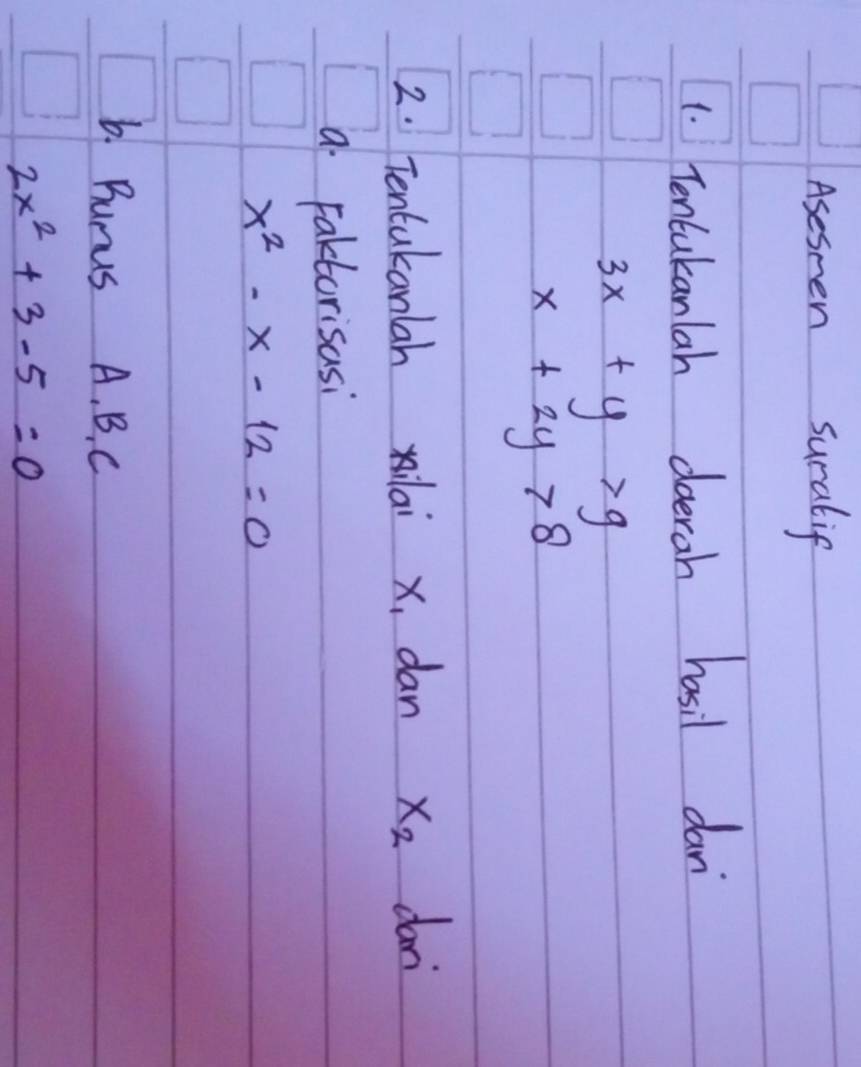 Asesmen sumatif
1. Tentukanlah daerah hasil dari
3x + y > 9
x + 2y > 8
2. Tentukanlah nilai x₁ dan x₂ dari
a. Faktorisasi
x² - x - 12 = 0
b. Rumus A, B, C
2x² + 3 - 5 = 0